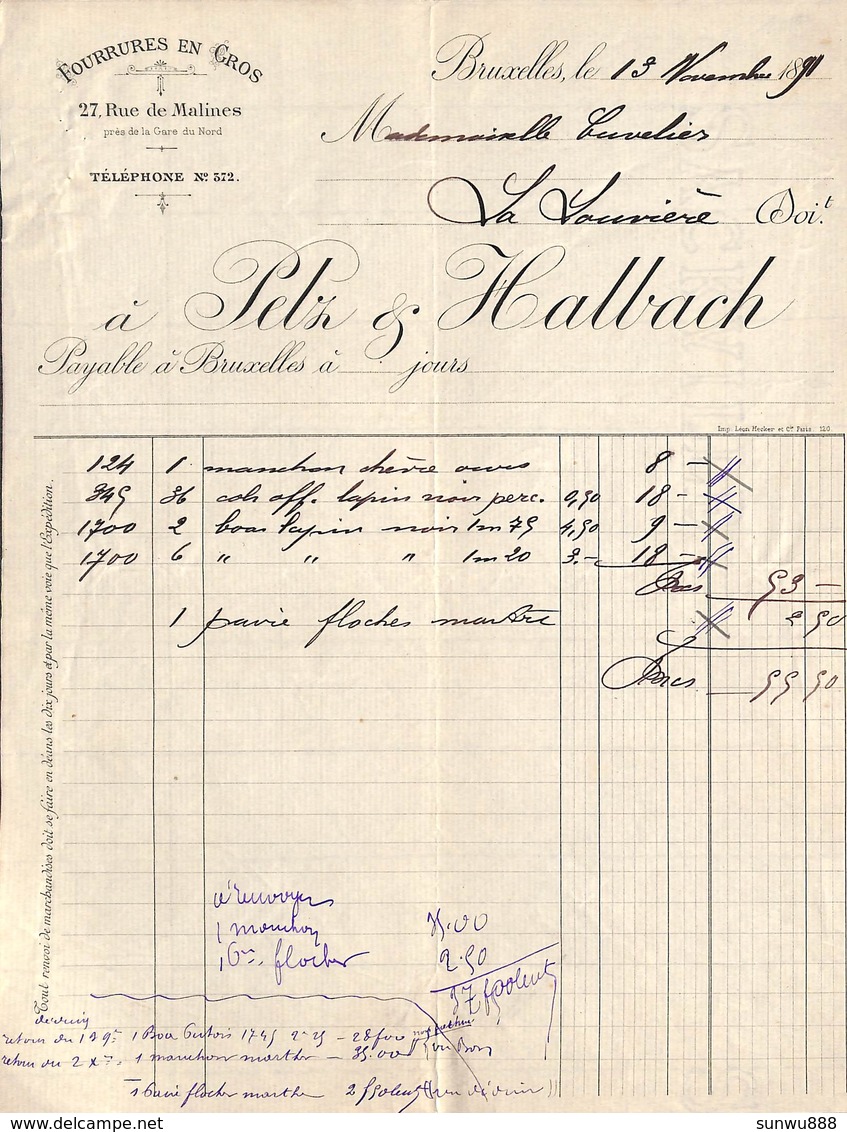 FOURRURES EN GROS
27, Rue de Malines
près de la Gare du Nord
TÉLÉPHONE No 372.
Bruxelles, le 13 Novembre 1891
Mademoiselle Cuvelier
La Louvière Doit
à Pelz & Halbach
Payable à Bruxelles à jours
Imp. Léon Hecker et Cie Paris. 120
Tout renvoi de marchandises doit se faire en déans les dix jours et par la même voie que l'Expédition.
124 1 manchon chèvre ours 8 —
345 36 cols off. lapin noir perc. 0,50 18 -
1700 2 boas lapin noir 1m75 4,50 9 —
1700 6 " " " 1m20 3.— 18 —
Frcs 53 —
1 pavie floches martre 2 50
Frcs 55 50
à renvoyer
1 manchon 35.00
1 floches 2.50
37
déduire
retour du 1 Boa 1745 - 28
retour du 1 manchon marthe — 35.00 Bon
1 flocher marthe 2
www.delcampe.net
sunwu888